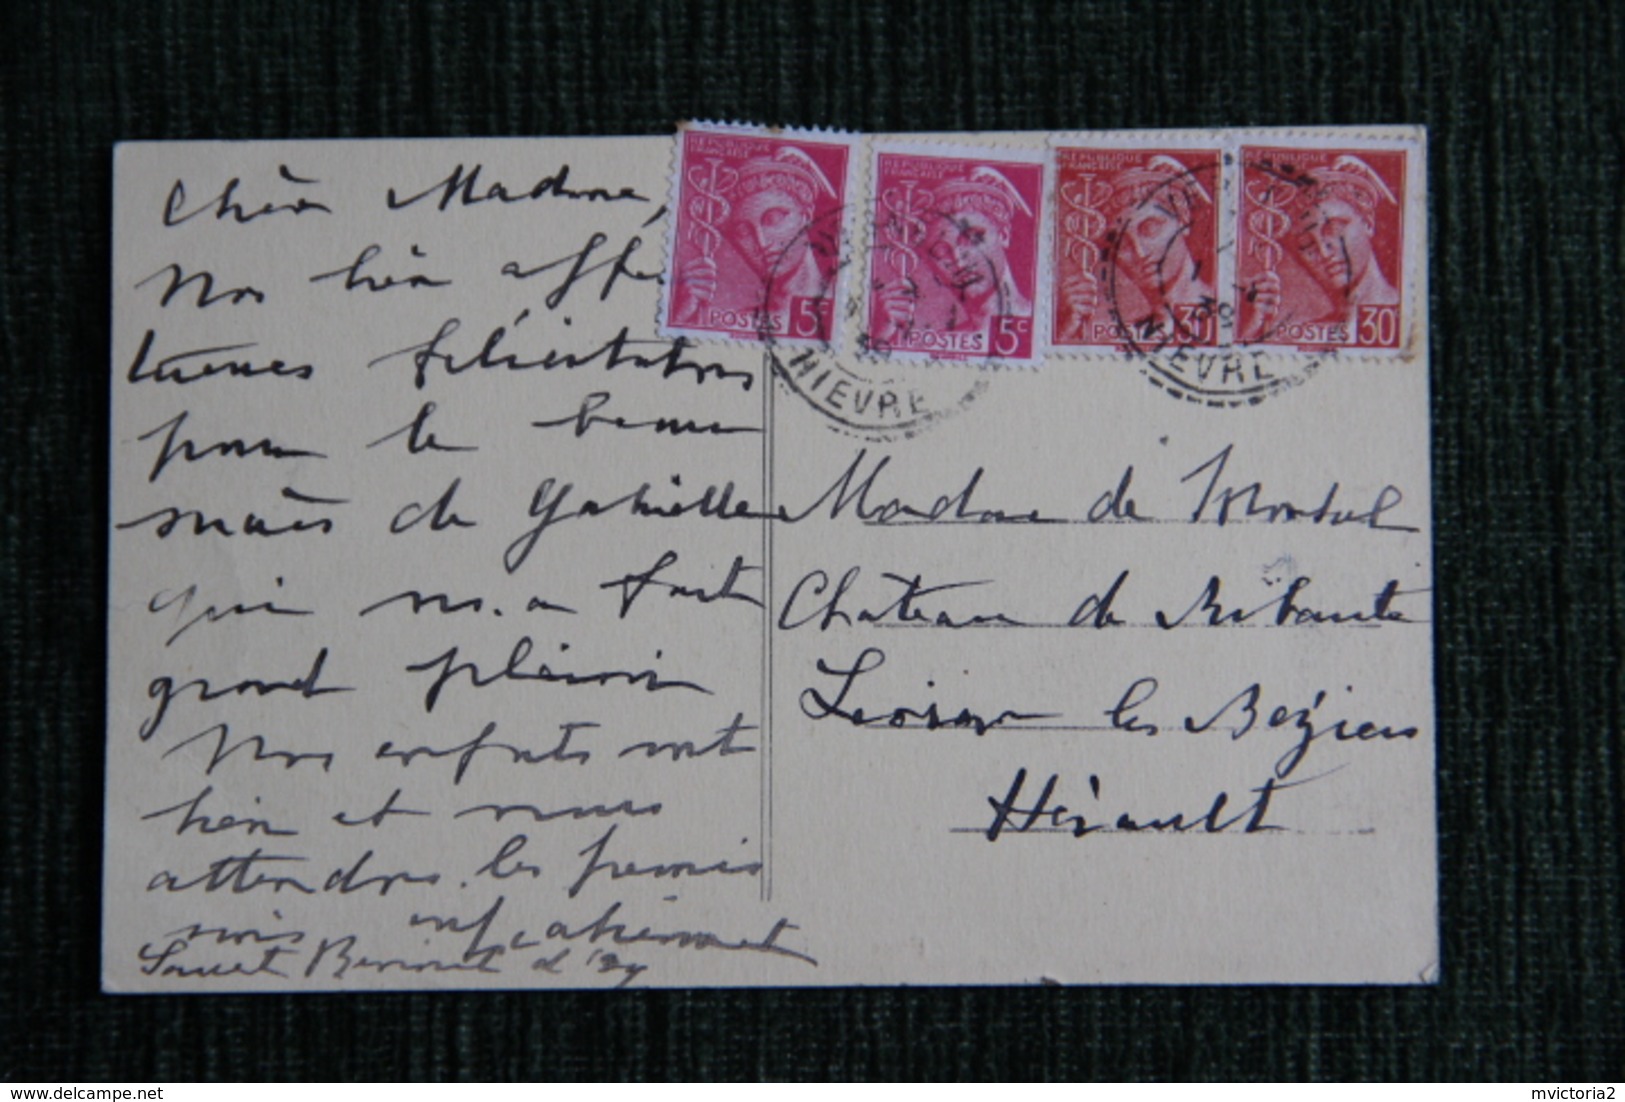 Chère Madame,
Nos bien affec
tueuses félicitations
pour le beau
succès de Gabrielle
qui ns. a fait
grand plaisir
Nos enfants vont
bien et nous
attendons les premiers
impatiemment
Saint Benin d'Azy
RÉPUBLIQUE FRANÇAISE
POSTES 5c
RÉPUBLIQUE FRANÇAISE
POSTES 5c
RÉPUBLIQUE FRANÇAISE
POSTES 30
RÉPUBLIQUE FRANÇAISE
POSTES 30
NIEVRE
NIEVRE
Madame de Montal
Chateau de Ribaute
Lieuran les Béziers
Hérault
mvictoria2